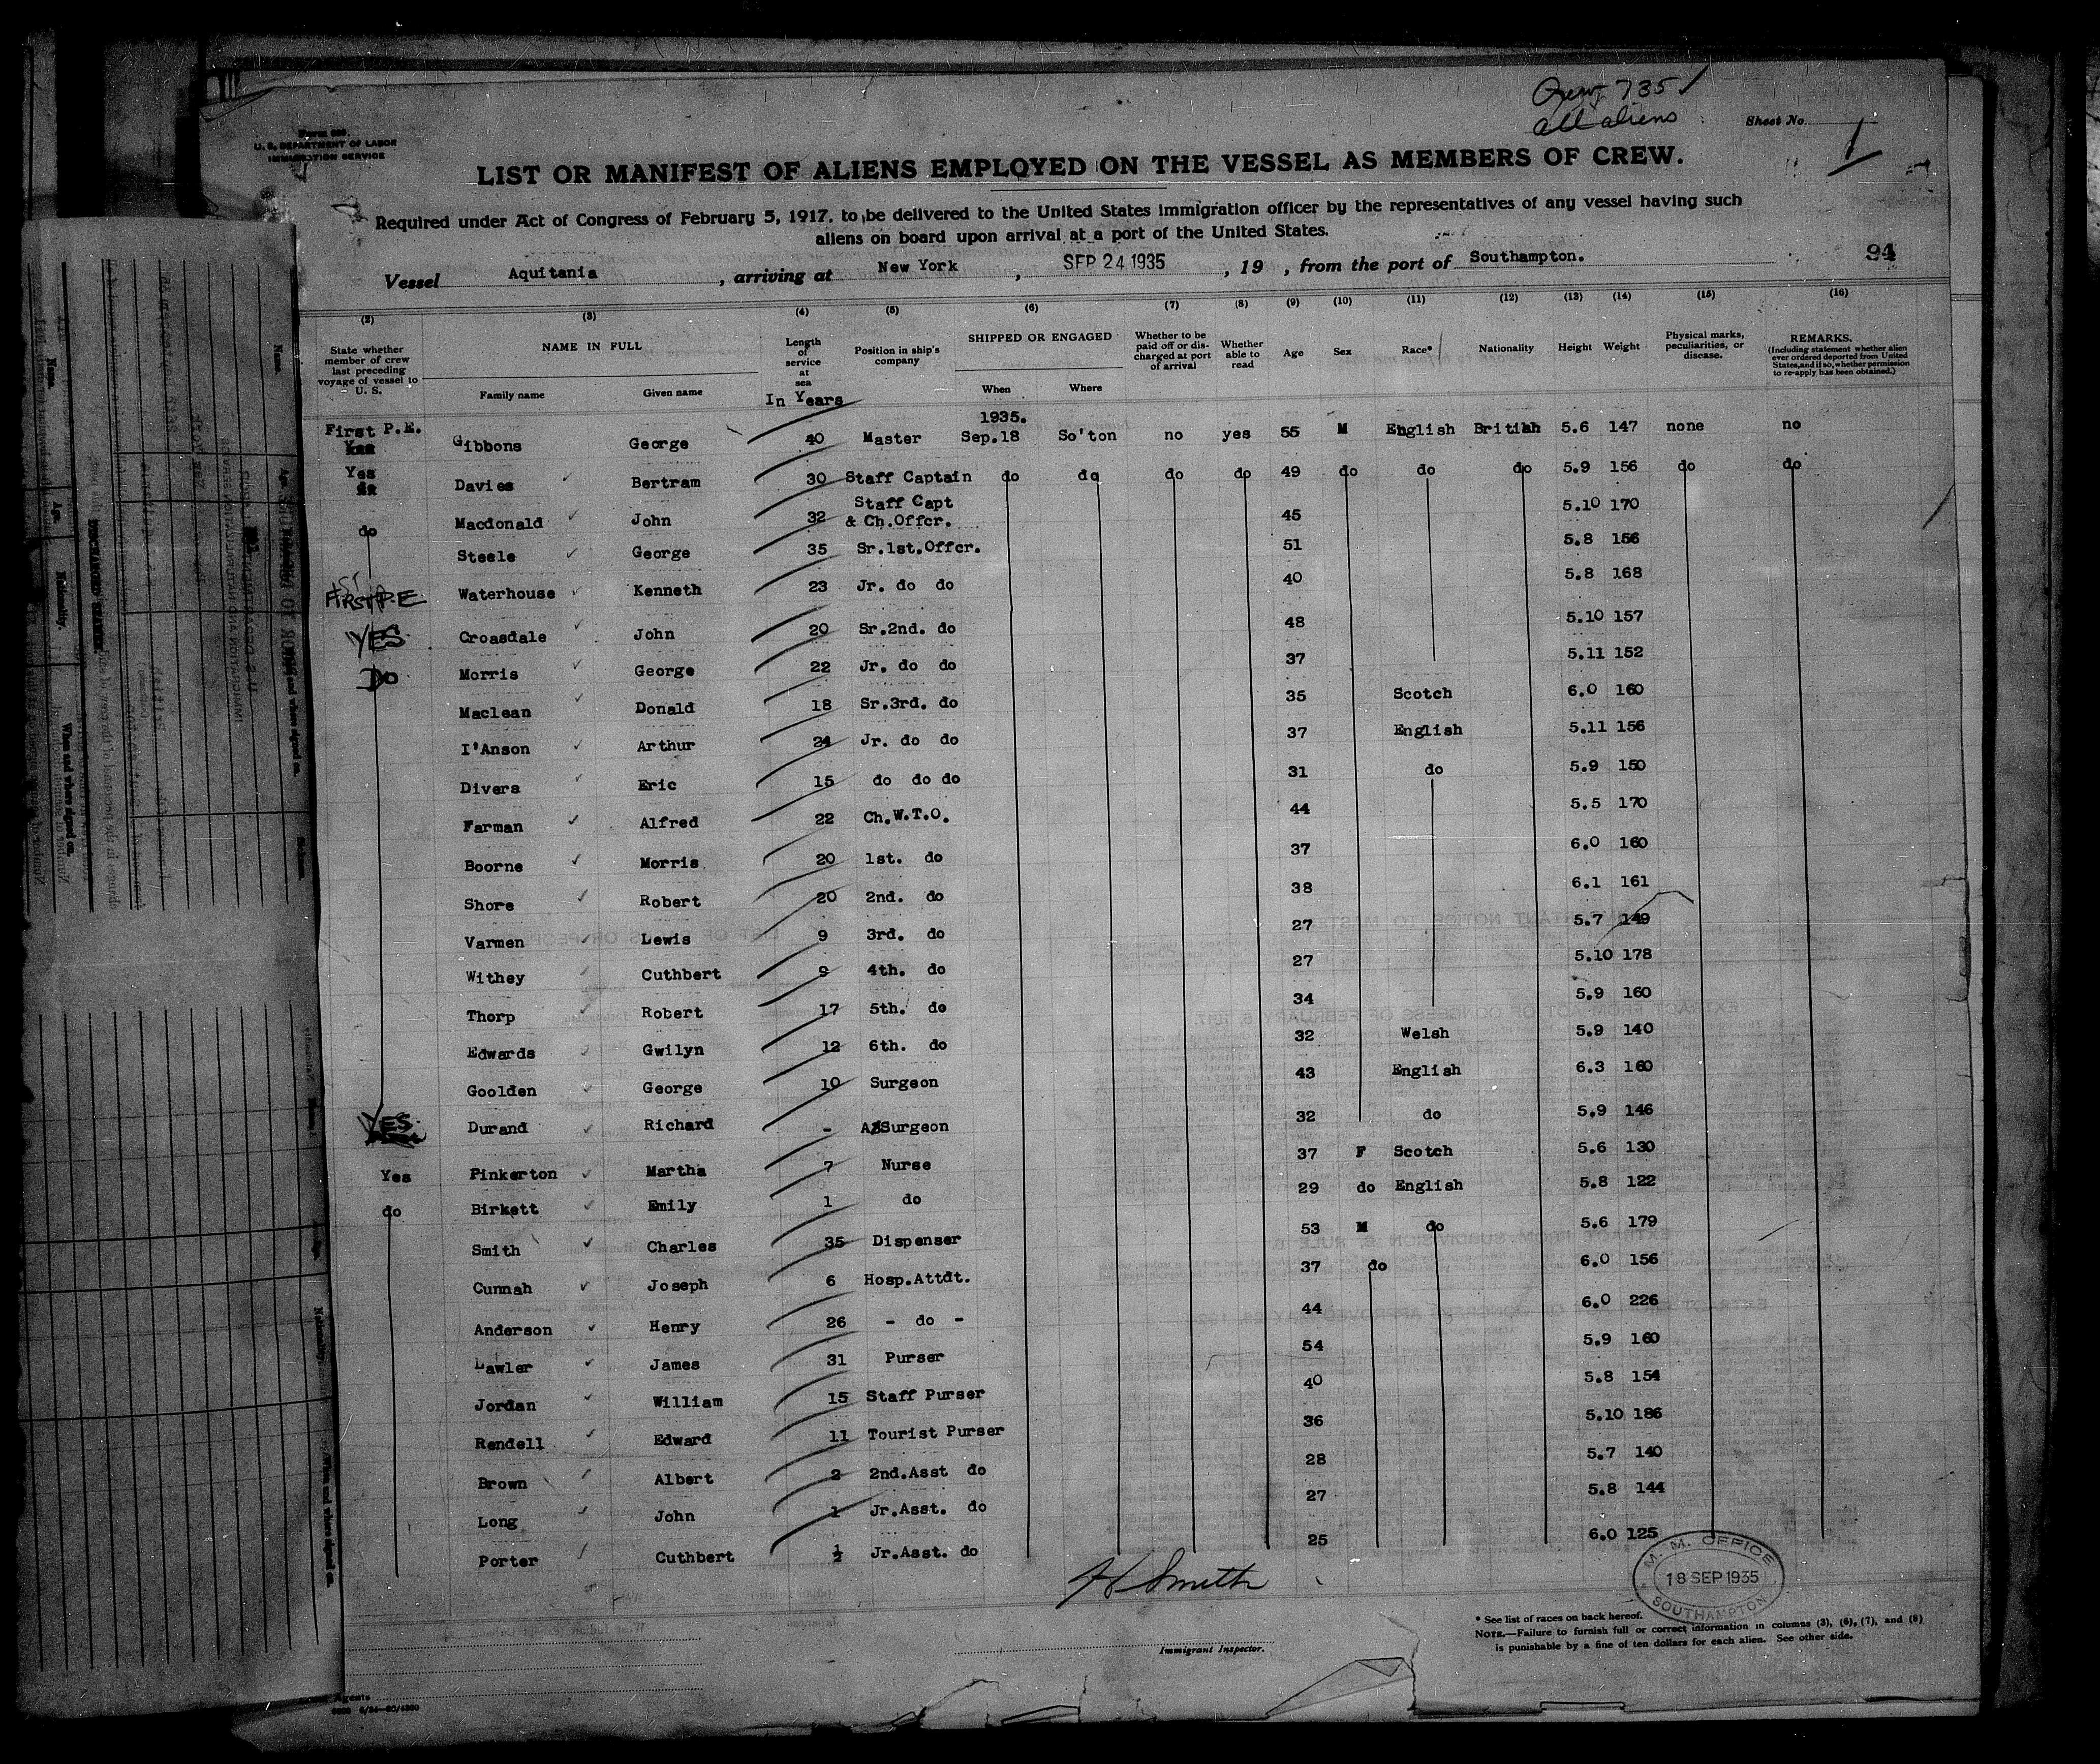 Crew 735
all aliens
Sheet No. 1
Form 689
U. S. DEPARTMENT OF LABOR
IMMIGRATION SERVICE
LIST OR MANIFEST OF ALIENS EMPLOYED ON THE VESSEL AS MEMBERS OF CREW.
Required under Act of Congress of February 5, 1917, to be delivered to the United States immigration officer by the representatives of any vessel having such
aliens on board upon arrival at a port of the United States.
94
Vessel Aquitania, arriving at New York, SEP 24 1935, 19 , from the port of Southampton.
(2) (3) (4) (5) (6) (7) (8) (9) (10) (11) (12) (13) (14) (15) (16)
State whether member of crew last preceding voyage of vessel to U. S. NAME IN FULL Family name Given name Length of service at sea In Years Position in ship's company SHIPPED OR ENGAGED When Where Whether to be paid off or discharged at port of arrival Whether able to read Age Sex Race* Nationality Height Weight Physical marks, peculiarities, or disease. REMARKS. (Including statement whether alien ever ordered deported from United States, and if so, whether permission to re-apply has been obtained.)
1935.
First P.E. Yes Gibbons George 40 Master Sep.18 So'ton no yes 55 M English Britihh 5.6 147 none no
Yes do Davies Bertram 30 Staff Captain do do do do 49 do do do 5.9 156 do do
do Macdonald John 32 Staff Capt & Ch.Offcr. 45 5.10 170
Steele George 35 Sr.1st.Offcr. 51 5.8 156
FIRST P.E Waterhouse Kenneth 23 Jr. do do 40 5.8 168
YES Croasdale John 20 Sr.2nd. do 48 5.10 157
DO Morris George 22 Jr. do do 37 5.11 152
Maclean Donald 18 Sr.3rd. do 35 Scotch 6.0 160
I'Anson Arthur 24 Jr. do do 37 English 5.11 156
Divers Eric 15 do do do 31 do 5.9 150
Farman Alfred 22 Ch.W.T.O. 44 5.5 170
Boorne Morris 20 1st. do 37 6.0 160
Shore Robert 20 2nd. do 38 6.1 161
Varmen Lewis 9 3rd. do 27 5.7 149
Withey Cuthbert 9 4th. do 27 5.10 178
Thorp Robert 17 5th. do 34 5.9 160
Edwards Gwilyn 12 6th. do 32 Welsh 5.9 140
Goolden George 10 Surgeon 43 English 6.3 160
YES Durand Richard - A/Surgeon 32 do 5.9 146
Yes Pinkerton Martha 7 Nurse 37 F Scotch 5.6 130
do Birkett Emily 1 do 29 do English 5.8 122
Smith Charles 35 Dispenser 53 M do 5.6 179
Cunnah Joseph 6 Hosp.Attdt. 37 do 6.0 156
Anderson Henry 26 - do - 44 6.0 226
Lawler James 31 Purser 54 5.9 160
Jordan William 15 Staff Purser 40 5.8 154
Rendell Edward 11 Tourist Purser 36 5.10 186
Brown Albert 2 2nd.Asst do 28 5.7 140
Long John 1 Jr.Asst. do 27 5.8 144
Porter Cuthbert ½ Jr.Asst. do 25 6.0 125
H Smith
Immigrant Inspector.
M. M. OFFICE
18 SEP 1935
SOUTHAMPTON
* See list of races on back hereof.
NOTE.—Failure to furnish full or correct information in columns (3), (6), (7), and (8)
is punishable by a fine of ten dollars for each alien. See other side.
Agents